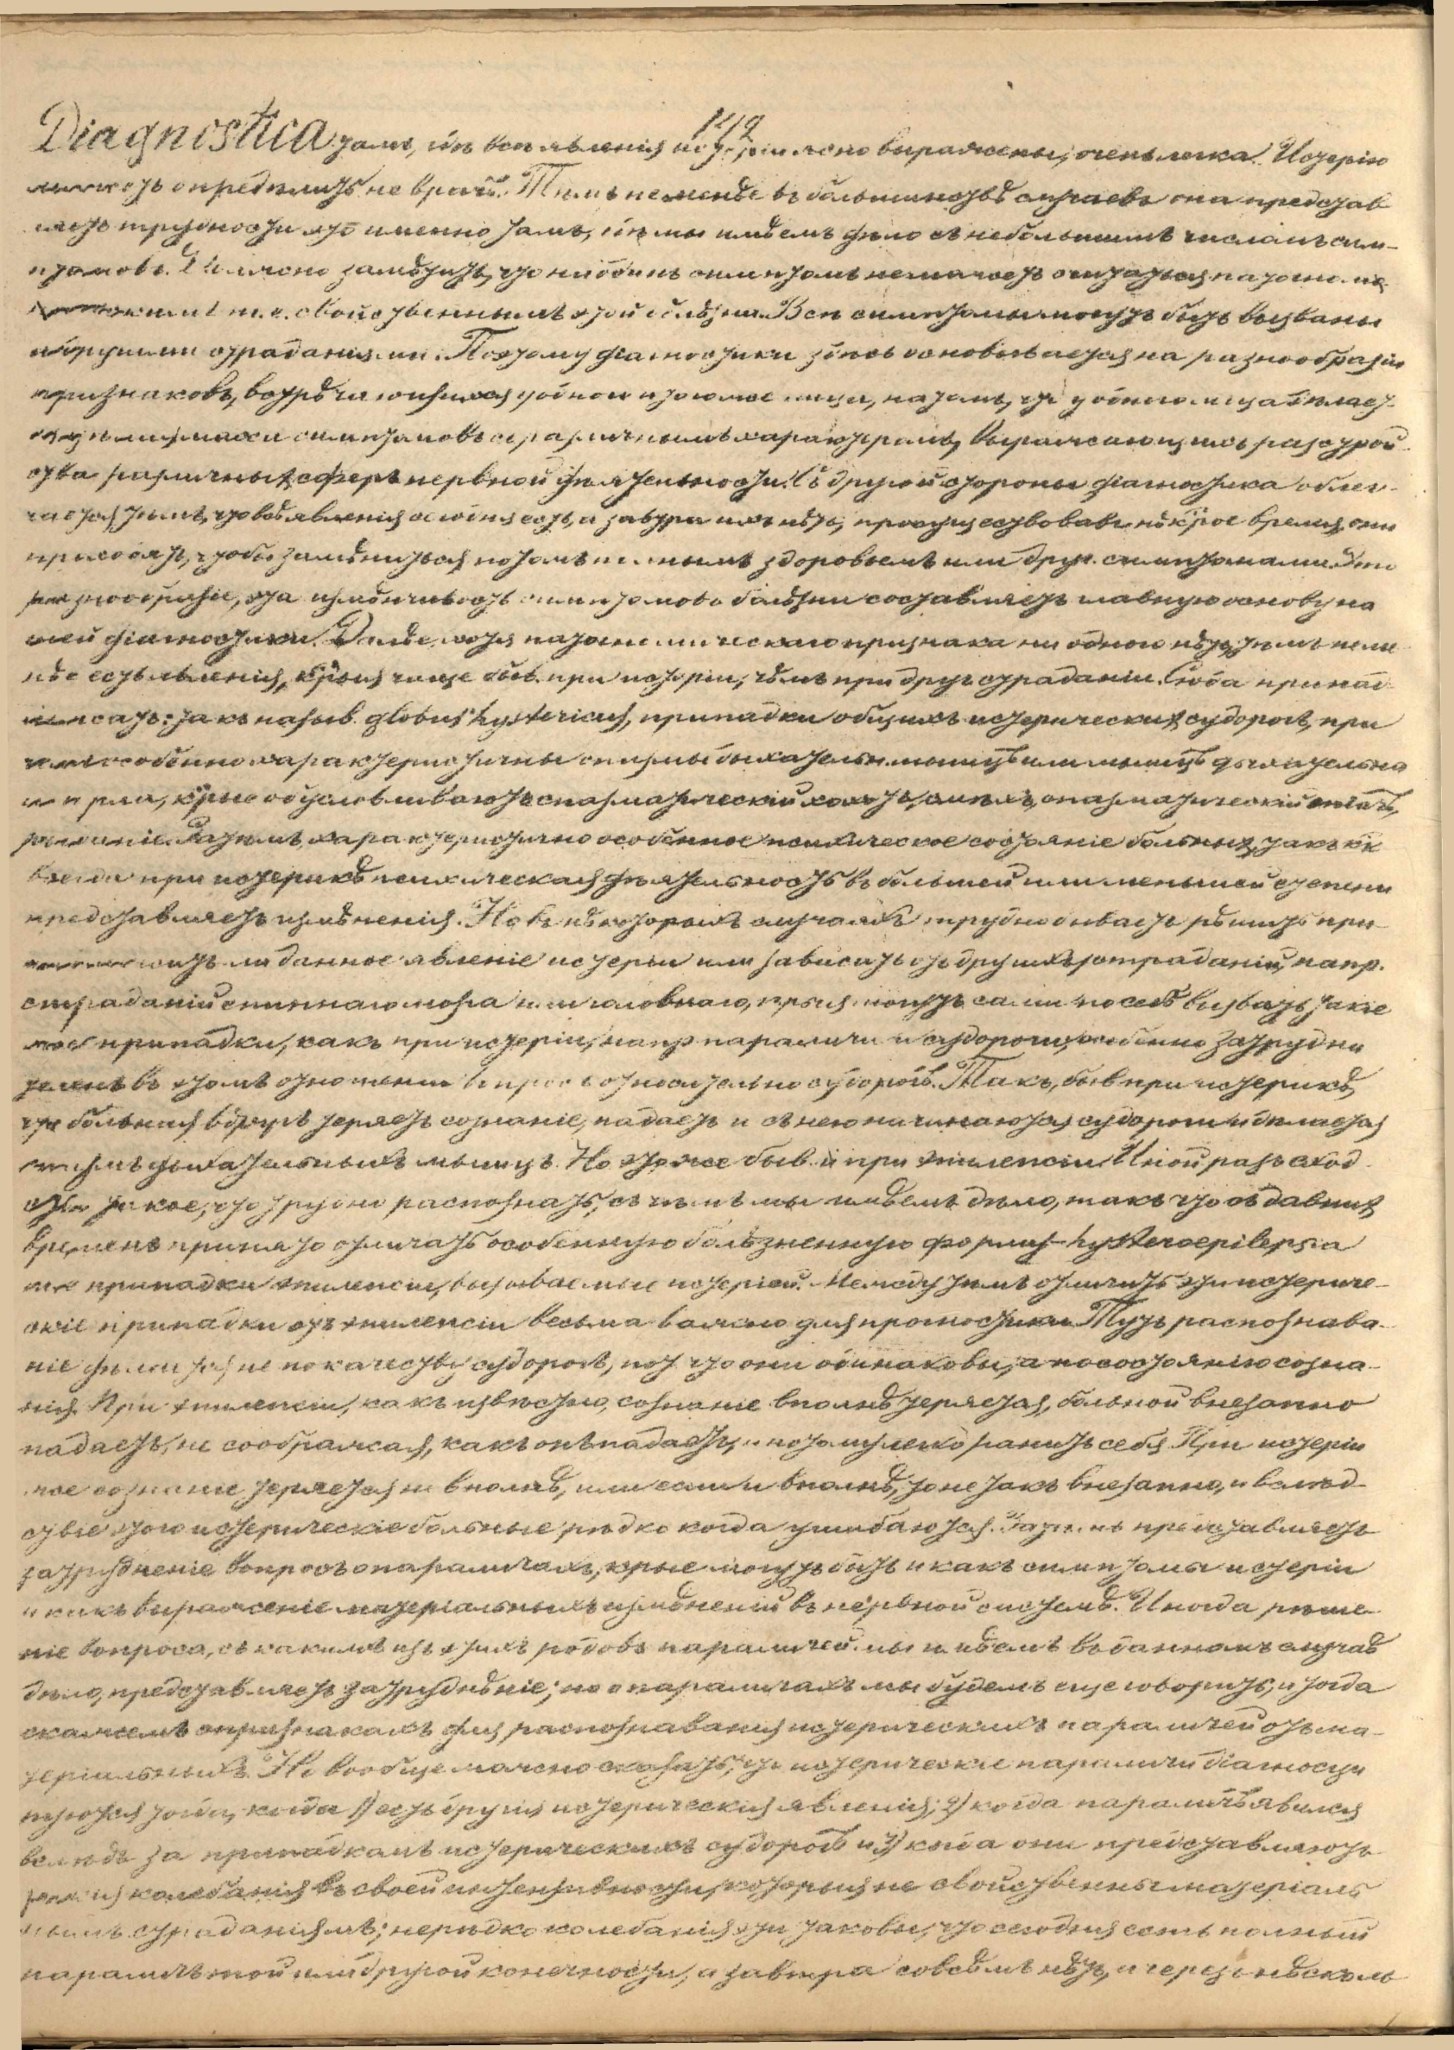 142
Diagnostica тамъ, гдѣ всѣ явленія истеріи ясно выражены, очень легка. Истерію
можетъ опредѣлить не врачъ. Тѣмъ не менѣе въ большинствѣ случаевъ она представ
ляетъ трудности это именно тамъ, гдѣ мы имѣемъ дѣло съ небольшимъ числомъ сим-
птомовъ. Должно замѣтить, что ни одинъ симптомъ не можетъ считаться патогно мо
т. е. свойственнымъ этой болѣзни. Всѣ симптомы могутъ быть вызваны
и другими страданіями. Поэтому діагностика здѣсь основывается на разнообразіи
признаковъ, встрѣчающихся у одного и того же лица, на томъ, что у одного лица бываетъ
масса симптомовъ съ различнымъ характеромъ, выражающихъ разстрой
ства различныхъ сферъ нервной дѣятельности. Съ другой стороны діагностика облег-
чается тѣмъ, что всѣ явленія сегодня есть, а завтра ихъ нѣтъ, просуществовавъ нѣкрое время, они
проходятъ, чтобы замѣниться потомъ полнымъ здоровьемъ или друг. симптомами. Это
разнообразіе, эта измѣнчивость симптомовъ болѣзни составляетъ главную основу на
шей діагностики. Далѣе, хотя патогномическаго признака ни одного нѣтъ, тѣмъ не ме
нѣе есть явленія, крыя чаще быв. при истеріи, чѣмъ при друг. страданіи. Сюда принад
лежатъ: такъ назыв. globus hystericus, припадки общихъ истерическихъ судорогъ, при
чемъ особенно характеристичны спазмы дыхательн. мышцъ или мышцъ дыхательна
го горла, крые обусловливаютъ спазматическій хохотъ, смѣхъ, спазматическій
рыданіе. Затѣмъ характеристично особенное психическое состояніе больныхъ, такъ кк
всегда при истерикѣ психическая дѣятельность въ большей или меньшей степени
представляетъ измѣненія. Но въ нѣкоторыхъ случаяхъ трудно бываетъ рѣшить при-
ли данное явленіе истеріи или зависитъ отъ другихъ страданій, напр.
страданій спиннаго мозга или головнаго, крыя могутъ сами по себѣ вызвать такіе
же припадки, какъ при истеріи, напр. параличи и судороги; особенно затрудни
теленъ въ этомъ отношеніи вопросъ относительно судорогъ. Такъ, быв. при истерикѣ,
что больная вдругъ теряетъ сознаніе, падаетъ и съ нею начинаются судороги и дѣлается
спазмъ дыхательныхъ мышцъ. Но это же быв. и при эпилепсіи. Иной разъ сход
ство такое, что трудно распознать, съ чѣмъ мы имѣемъ дѣло, такъ что съ давнихъ
временъ принято отличать особенную болѣзненную форму hysteroepilepsia
т. е. припадки эпилепсіи, вызываемые истеріей. Между тѣмъ отличить эти истериче-
скіе припадки отъ эпилепсіи весьма важно для прогностики. Тутъ распознава-
ніе дѣлается не по качеству судорогъ, пот. что они одинаковы, а по состоянію созна-
нія. При эпилепсіи, какъ извѣстно, сознаніе вполнѣ теряется, больной внезапно
падаетъ, не соображаясь, какъ онъ падаетъ, и потому легко ранитъ себя. При истеріи
же сознаніе теряется не вполнѣ, или если и вполнѣ, то не такъ внезапно, и вслѣд-
ствіе этого истерическіе больные рѣдко когда ушибаются. Затѣмъ представляетъ
затрудненіе вопросъ о параличахъ, крые могутъ быть и какъ симптомы истеріи
и какъ выраженіе матеріальныхъ измѣненій въ нервной системѣ. Иногда рѣше
ніе вопроса, съ какимъ изъ этихъ родовъ параличей мы имѣемъ въ данномъ случаѣ
дѣло, представляетъ затрудненіе; но о параличахъ мы будемъ еще говорить, и тогда
скажемъ о признакахъ для распознаванія истерическихъ параличей отъ ма-
теріальныхъ. Но вообще можно сказать, что истерическіе параличи діагности
руются тогда, когда 1) есть другія истерическія явленія; 2) когда параличъ явился
вслѣдъ за припадкомъ истерическихъ судорогъ и 3) когда они представляютъ
колебанія въ своей интензивности, которыя не свойственны матеріаль
нымъ страданіямъ; нерѣдко колебанія эти таковы, что сегодня есть полный
параличъ той или другой конечности, а завтра совсѣмъ нѣтъ, и черезъ нѣсколь